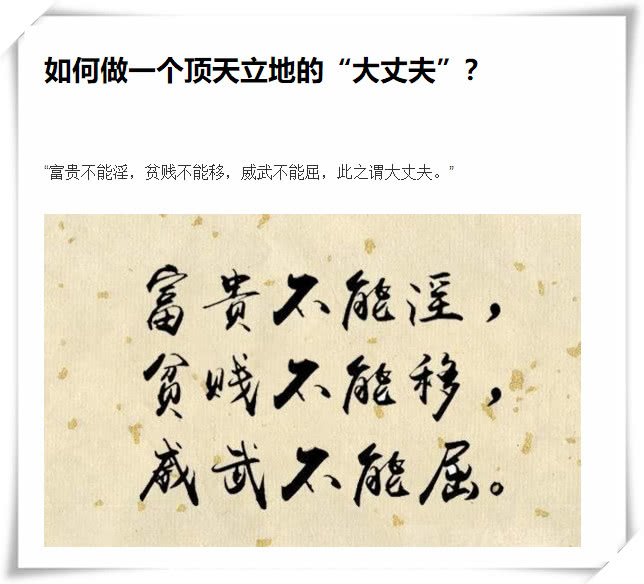 如何做一个顶天立地的“大丈夫”？
“富贵不能淫，贫贱不能移，威武不能屈，此之谓大丈夫。”
富贵不能淫，
贫贱不能移，
威武不能屈。